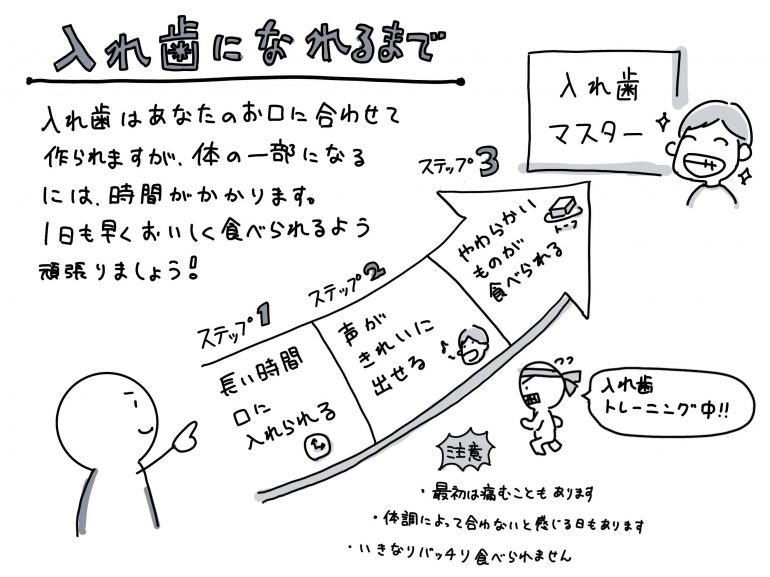 入れ歯になれるまで
入れ歯はあなたのお口に合わせて
作られますが、体の一部になる
には、時間がかかります。
1日も早くおいしく食べられるよう
頑張りましょう!
ステップ1
長い時間
口に
入れられる
ステップ2
声が
きれいに
出せる
ステップ3
やわらかい
ものが
食べられる
トーフ
入れ歯
マスター
入れ歯
トレーニング中!!
注意
・最初は痛むこともあります
・体調によって合わないと感じる日もあります
・いきなりバッチリ食べられません